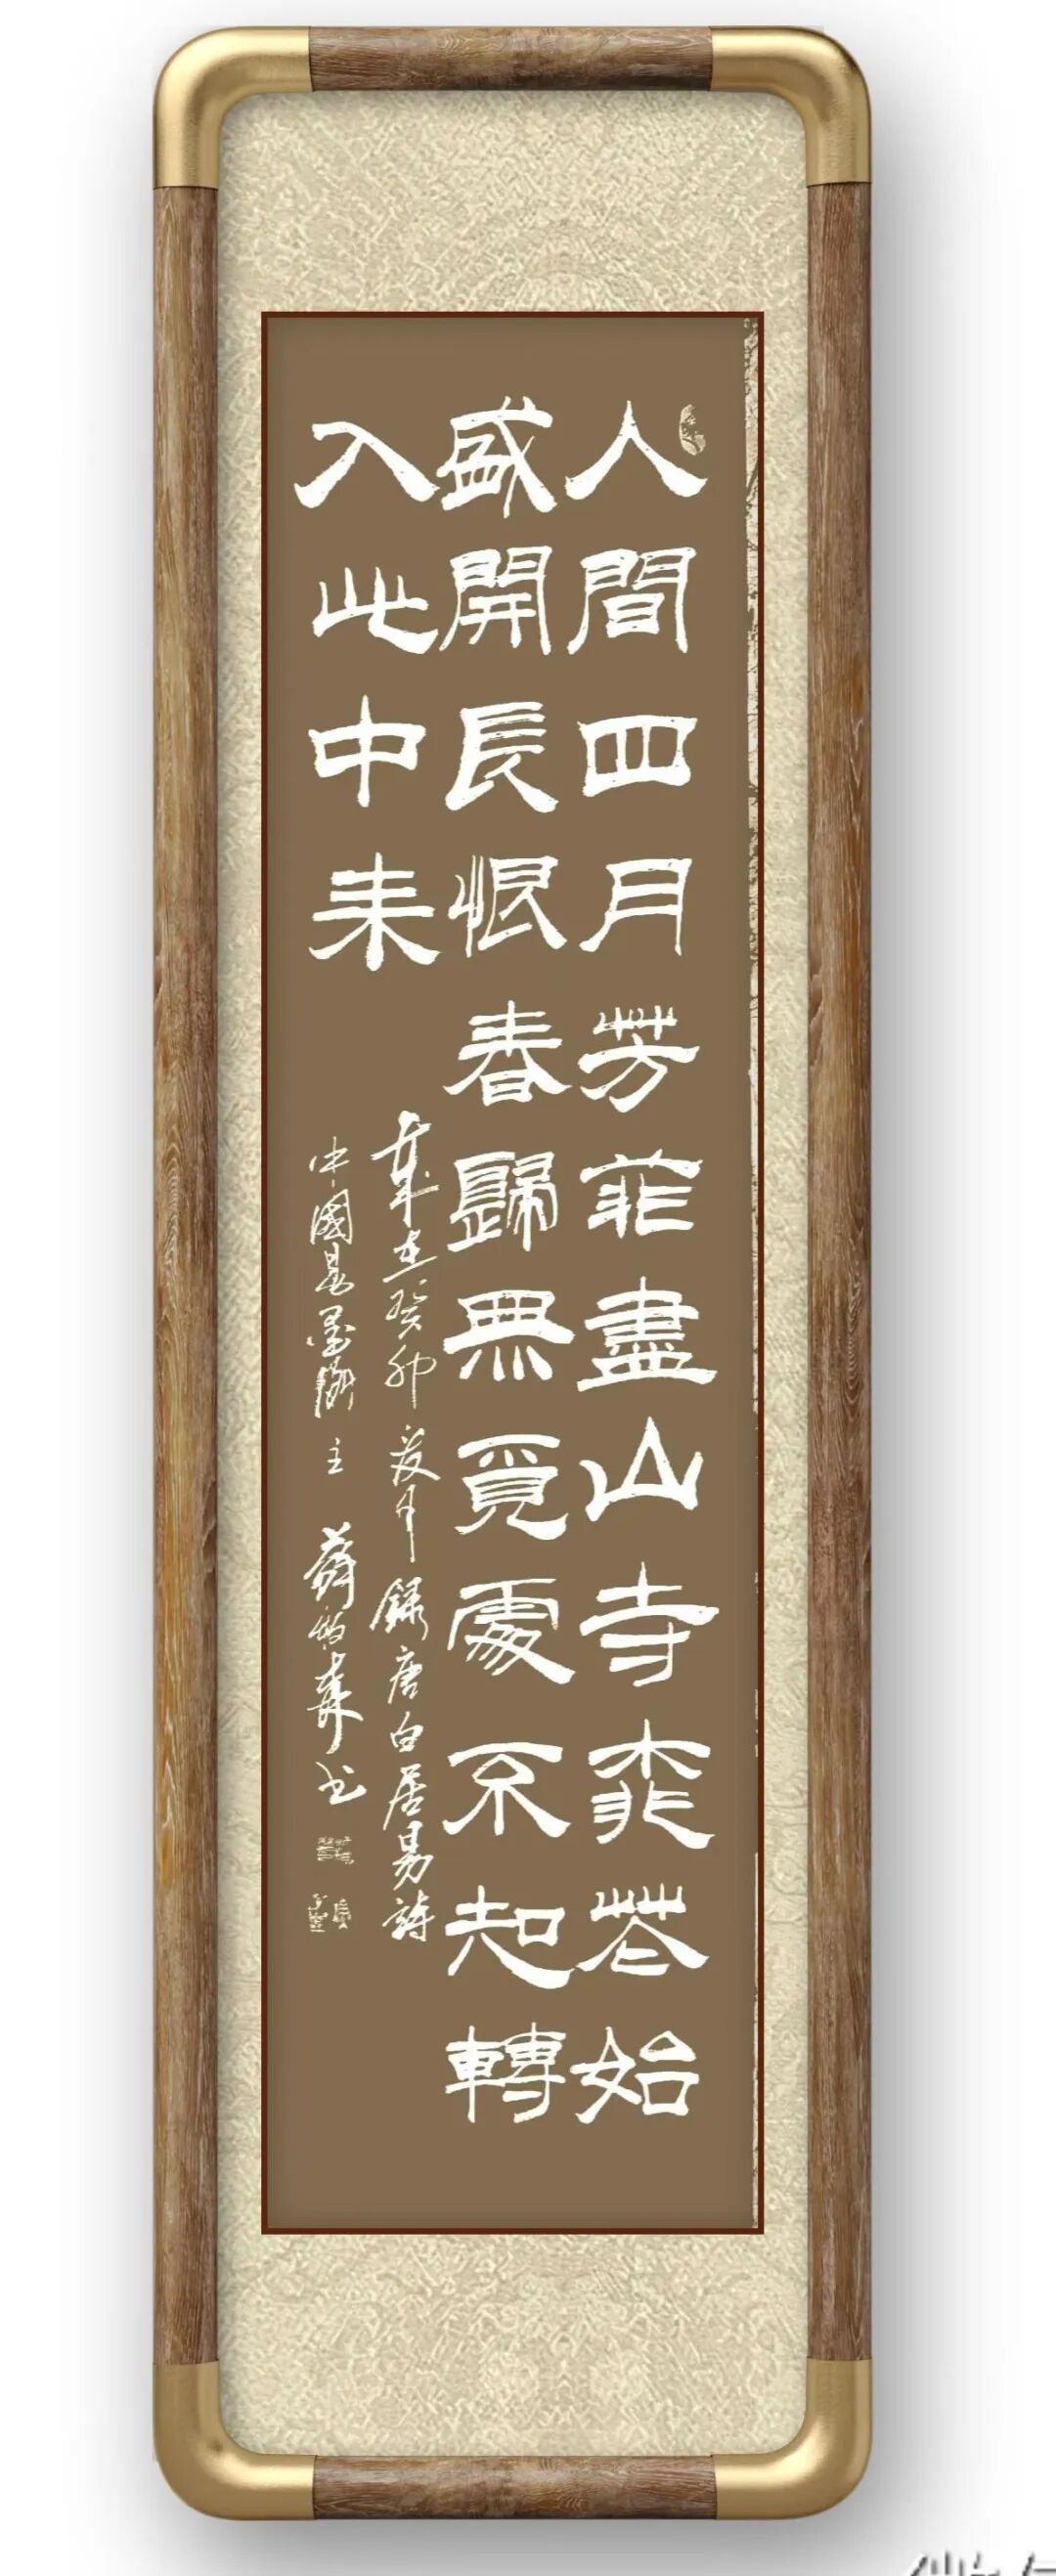 人間四月芳菲盡山寺桃花始
盛開長恨春歸無覓處不知轉
入此中来
歲在癸卯夏月錄唐白居易詩
中國墨主薛书